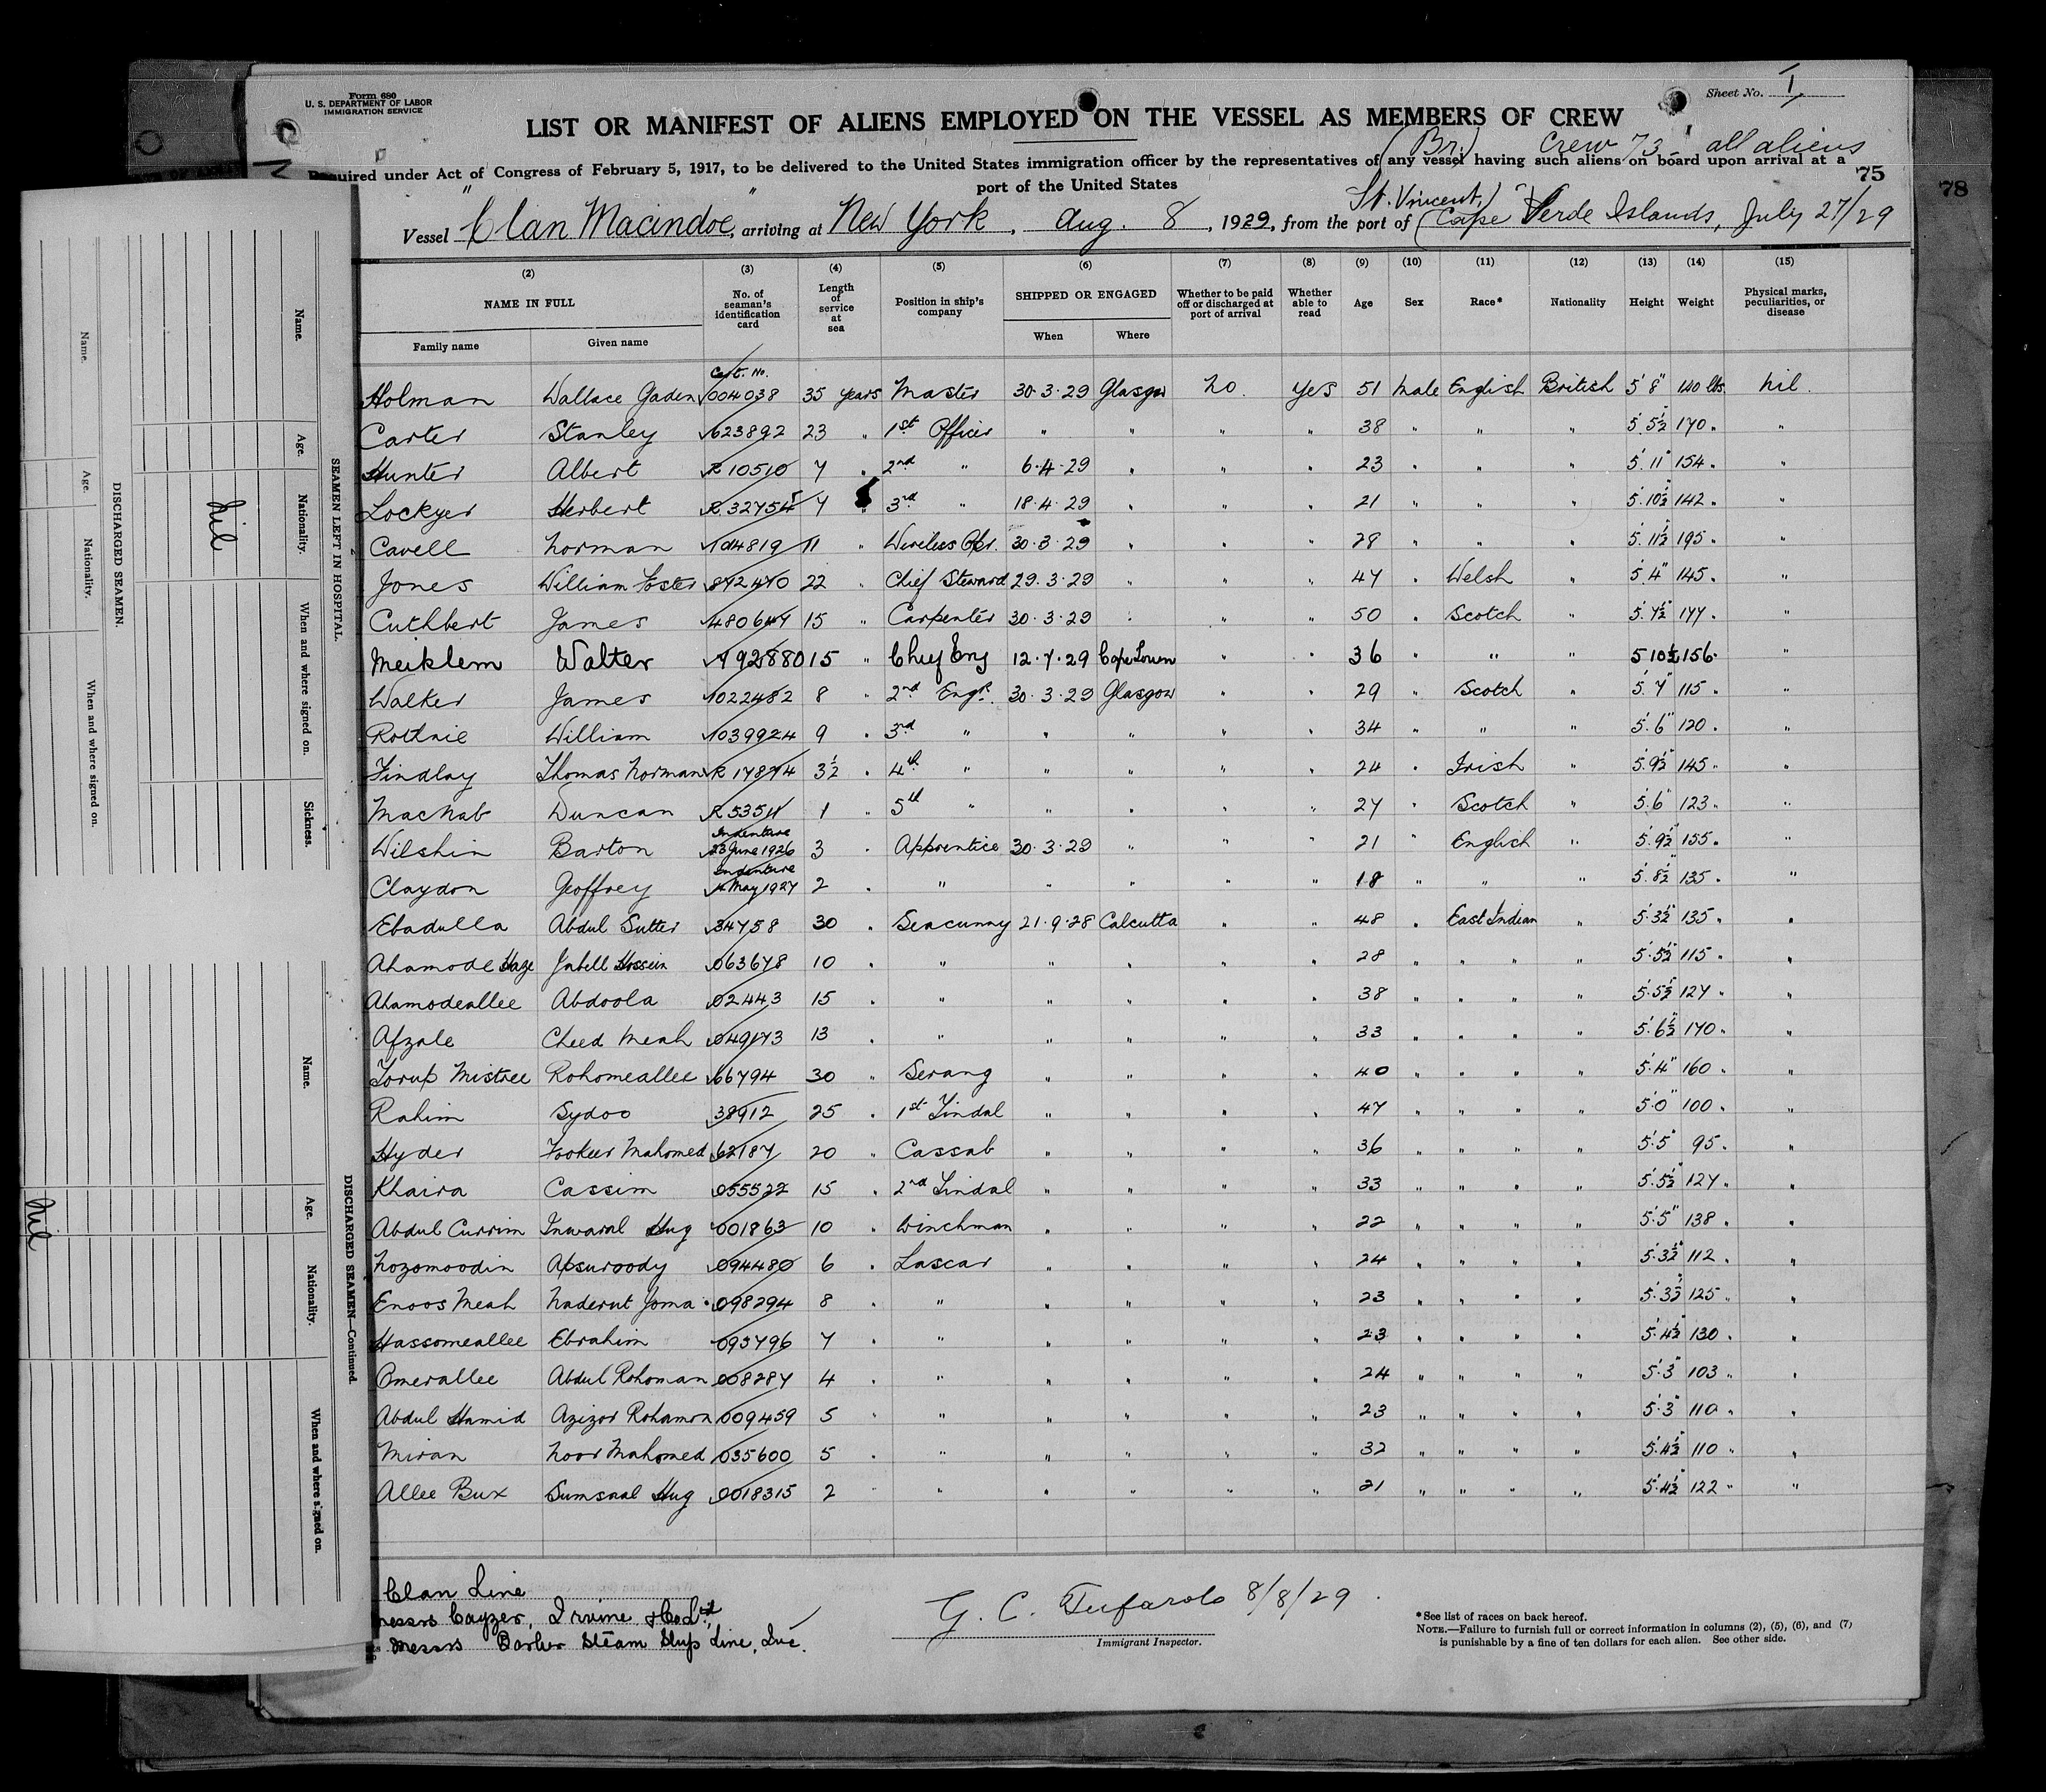 Form 680
U. S. DEPARTMENT OF LABOR
IMMIGRATION SERVICE
Sheet No. 1
LIST OR MANIFEST OF ALIENS EMPLOYED ON THE VESSEL AS MEMBERS OF CREW
(Br.) Crew 73 - all aliens
Required under Act of Congress of February 5, 1917, to be delivered to the United States immigration officer by the representatives of any vessel having such aliens on board upon arrival at a
port of the United States
75
78
Vessel "Clan Macindoe", arriving at New York, Aug. 8, 1929, from the port of (St. Vincent,) (Cape Verde Islands, July 27/29
(2) (3) (4) (5) (6) (7) (8) (9) (10) (11) (12) (13) (14) (15)
NAME IN FULL No. of seaman's identification card Length of service at sea Position in ship's company SHIPPED OR ENGAGED Whether to be paid off or discharged at port of arrival Whether able to read Age Sex Race* Nationality Height Weight Physical marks, peculiarities, or disease
Family name Given name When Where
Cert. No.
Holman Wallace Gaden 004038 35 years Master 30·3·29 Glasgow No. Yes 51 Male English British 5' 8" 140 lbs. Nil.
Carter Stanley 623892 23 " 1st Officer " " " " 38 " " " 5' 5½" 170 " "
Hunter Albert R 10510 7 " 2nd " 6·4·29 " " " 23 " " " 5' 11" 154 " "
Lockyer Herbert 7 " 3rd " 18·4·29 " " " 21 " " " 5' 10½" 142 " "
Cavell Norman 104819 11 " Wireless Opr. 30·3·29 " " " 28 " " " 5' 11½" 195 " "
Jones William Foster 872470 22 " Chief Steward 29·3·29 " " " 47 " Welsh " 5' 4" 145 " "
Cuthbert James 480647 15 " Carpenter 30·3·29 " " " 50 " Scotch " 5' 7½" 177 " "
Meiklem Walter 15 " Chief Eng 12·7·29 Cape Town " " 36 " " " 5 10½ 156 " "
Walker James 1022482 8 " 2nd Engr. 30·3·29 Glasgow " " 29 " Scotch " 5' 7" 115 " "
Rothnie William 1039924 9 " 3rd " " " " " 34 " " " 5' 6" 120 " "
Findlay Thomas Norman R 17874 3½ " 4th " " " " " 24 " Irish " 5' 9½" 145 " "
MacNab Duncan R 53511 1 " 5th " " " " " 27 " Scotch " 5' 6" 123 " "
Wilshin Barton Indenture 23 June 1926 3 " Apprentice 30·3·29 " " " 21 " English " 5' 9½" 155 " "
Claydon Geoffrey Indenture May 1927 2 " " " " " " 18 " " " 5' 8½" 135 " "
Ebadulla Abdul Sutter 34758 30 " Seacunny 21·9·28 Calcutta " " 48 " East Indian " 5' 3½" 135 " "
Ahamode Haze Jabell Hossein 063678 10 " " " " " " 28 " " " " 5' 5½" 115 " "
Ahamodeallee Abdoola 02443 15 " " " " " " 38 " " " " 5' 5½" 127 " "
Afzale Cheed Meah 049173 13 " " " " " " 33 " " " " 5' 6½" 170 " "
Torup Mistree Rohomeallee 66794 30 " Serang " " " " 40 " " " " 5' 4" 160 " "
Rahim Sydoo 38912 25 " 1st Tindal " " " " 47 " " " " 5' 0" 100 " "
Hyder Fookeer Mahomed 62187 20 " Cassab " " " " 36 " " " " 5' 5" 95 " "
Khaira Cassim 055522 15 " 2nd Tindal " " " " 33 " " " " 5' 5½" 127 " "
Abdul Currim Inwaral Hug 001863 10 " Winchman " " " " 22 " " " " 5' 5" 138 " "
Nozomoodin Apsuroody 094480 6 " Lascar " " " " 24 " " " " 5' 3½" 112 " "
Enoos Meah Naderut Joma 098294 8 " " " " " " 23 " " " " 5' 3½" 125 " "
Hassomeallee Ebrahim 095796 7 " " " " " " 23 " " " " 5' 4½" 130 " "
Omerallee Abdul Rohoman 008287 4 " " " " " " 24 " " " " 5' 3" 103 " "
Abdul Hamid Azizor Rohamon 009459 5 " " " " " " 23 " " " " 5' 3" 110 " "
Miran Noor Mahomed 035600 5 " " " " " " 32 " " " " 5' 4½" 110 " "
Allee Bux Sumsoal Hug 0018315 2 " " " " " " 21 " " " " 5' 4½" 122 " "
Clan Line
Messrs Cayzer, Irvine & Co Ltd.
Messrs Barber Steam Ship Line, Inc.
G. C. Tufarolo 8/8/29.
Immigrant Inspector.
*See list of races on back hereof.
NOTE.—Failure to furnish full or correct information in columns (2), (5), (6), and (7)
is punishable by a fine of ten dollars for each alien. See other side.
SEAMEN LEFT IN HOSPITAL.
Name. Age. Nationality. When and where signed on. Sickness.
Nil
DISCHARGED SEAMEN.
Name. Age. Nationality. When and where signed on.
DISCHARGED SEAMEN—Continued.
Name. Age. Nationality. When and where signed on.
Nil